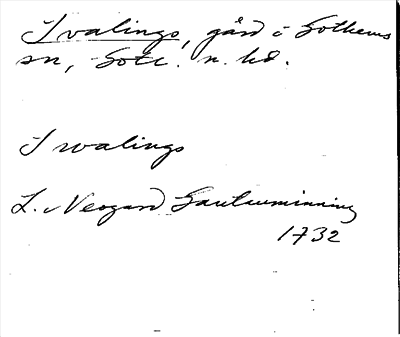 Svalings, gård i Gothems
sn, Gotl. n. hd.
Swalings
L. Neogard Gautauminning
1732